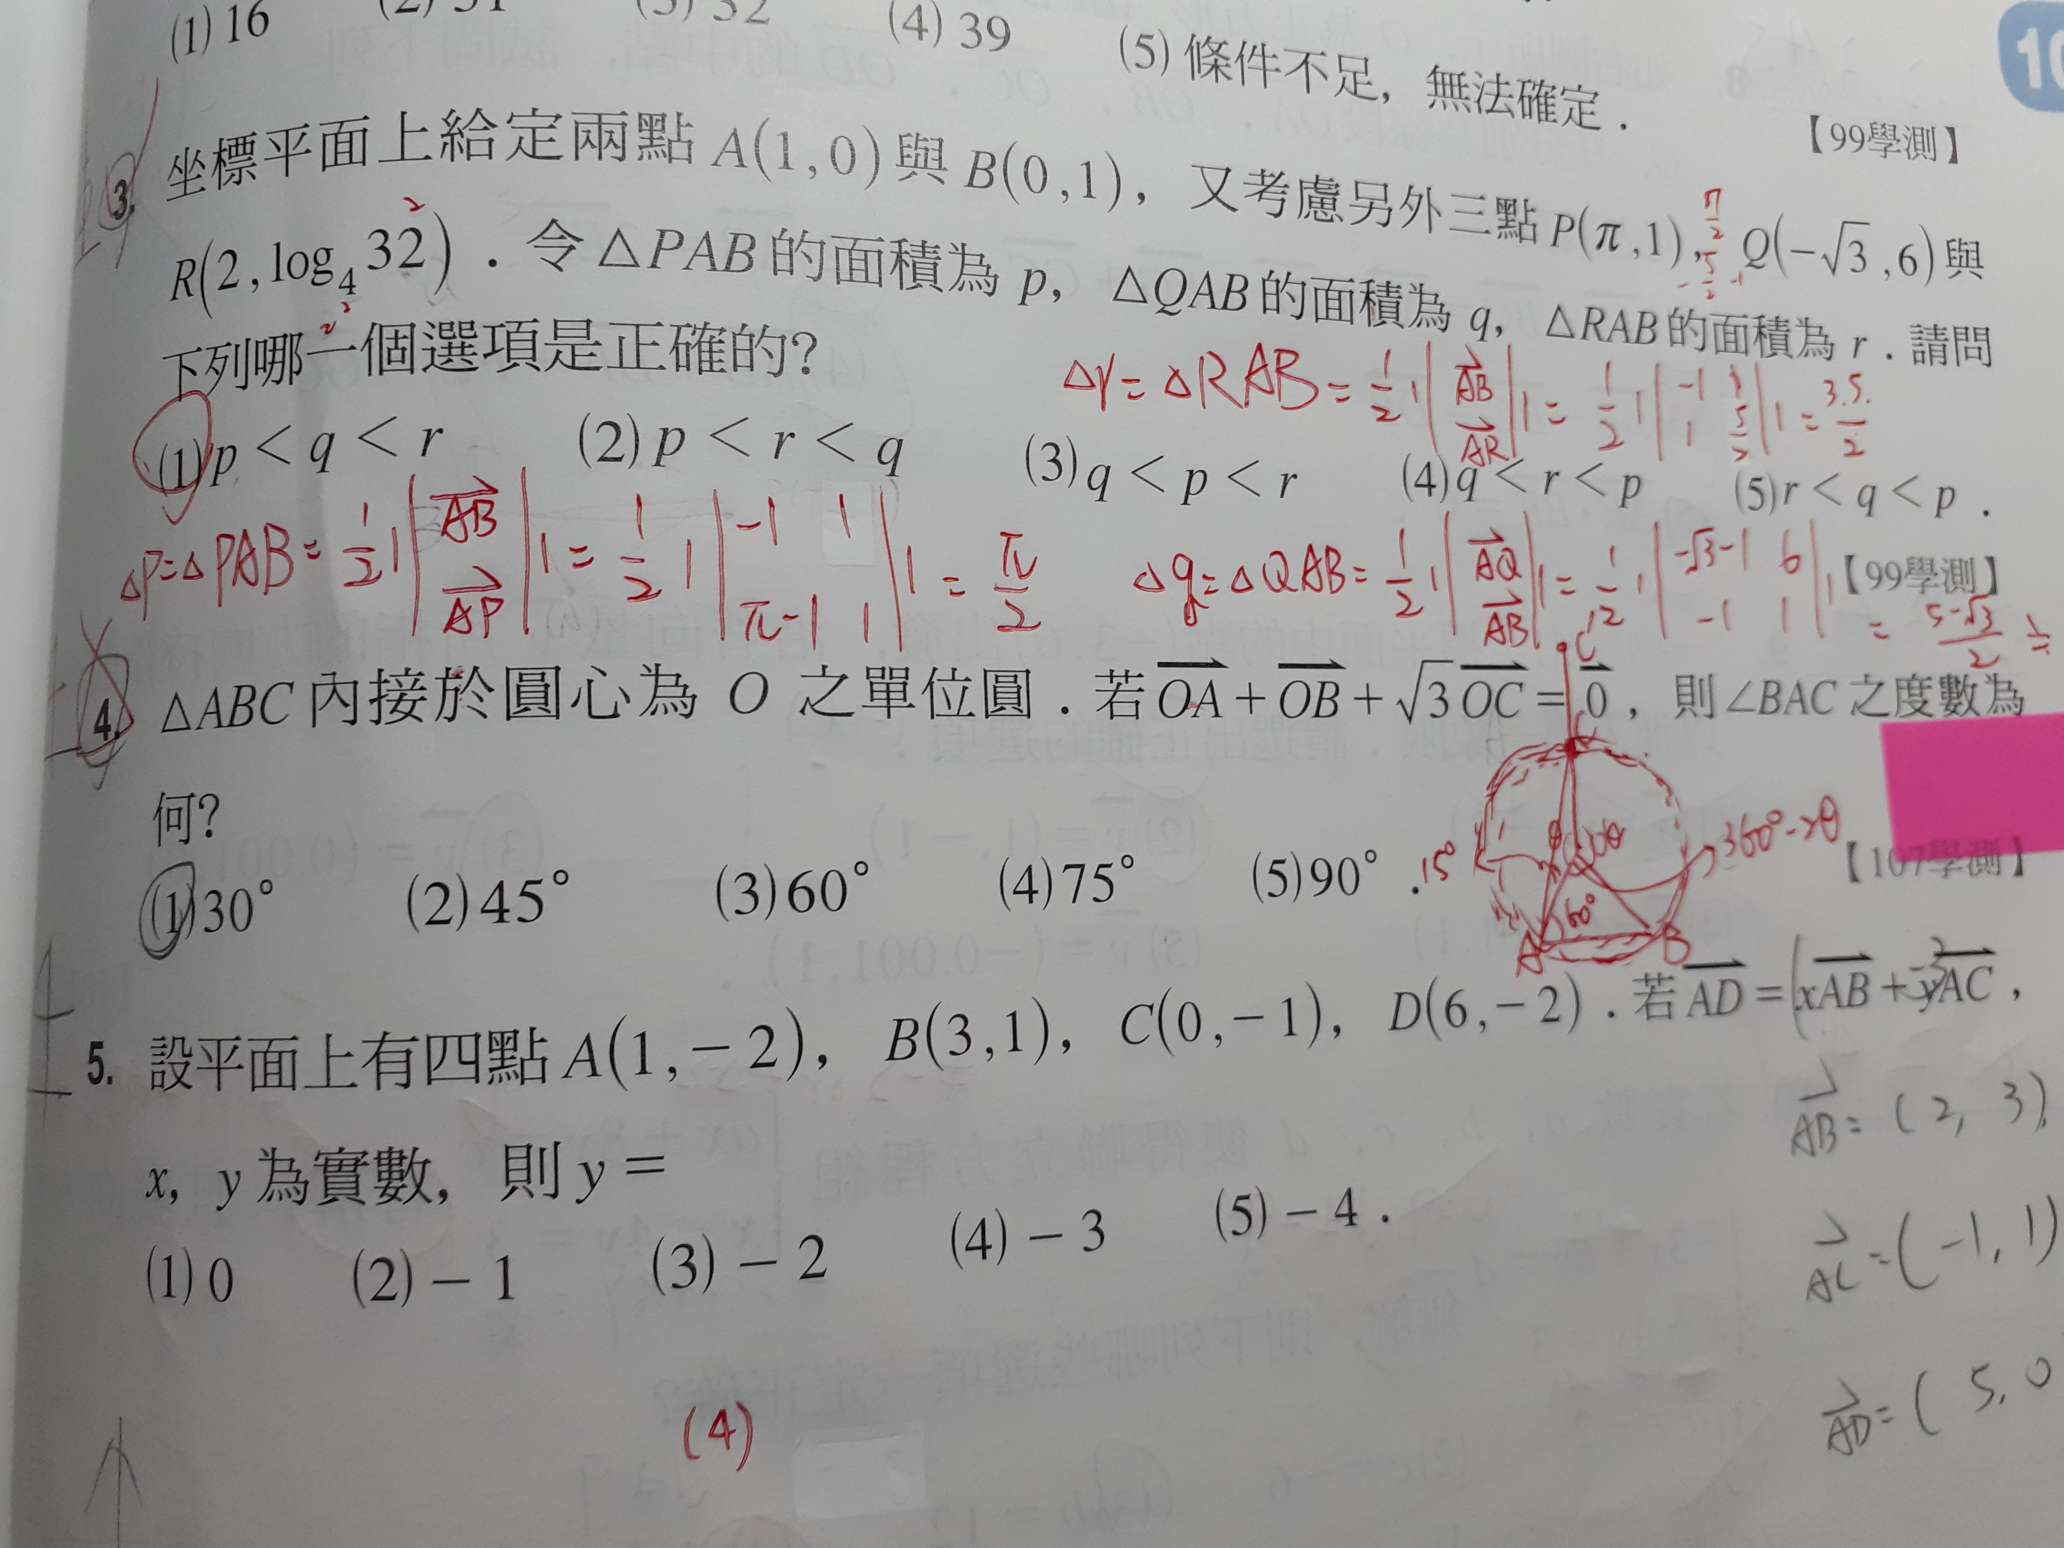 (1) 16 (2) 31 (3) 32 (4) 39 (5) 條件不足，無法確定．
【99學測】
10
3. 坐標平面上給定兩點 A(1,0) 與 B(0,1)，又考慮另外三點 P(π,1)，Q(−√3,6) 與
R(2,log₄32)．令△PAB的面積為 p，△QAB的面積為 q，△RAB的面積為 r．請問
下列哪一個選項是正確的？
△r = △RAB = 1/2 | |AB AR| | = 1/2 | |-1 1 1 5/2| | = 3.5/2
(1) p < q < r (2) p < r < q (3) q < p < r (4) q < r < p (5) r < q < p．
【99學測】
△P = △PAB = 1/2 | |AB AP| | = 1/2 | |-1 1 π-1 1| | = π/2
△q = △QAB = 1/2 | |AQ AB| | = 1/2 | |-√3-1 6 -1 1| | = 5-√3/2
4. △ABC 內接於圓心為 O 之單位圓．若 OA + OB + √3 OC = 0，則∠BAC 之度數為
何？
【107學測】
(1) 30° (2) 45° (3) 60° (4) 75° (5) 90°．
C
15°
360°-2θ
60°
A B
5. 設平面上有四點 A(1,−2)，B(3,1)，C(0,−1)，D(6,−2)．若 AD = xAB + yAC，
x，y 為實數，則 y =
(1) 0 (2) −1 (3) −2 (4) −3 (5) −4．
AB = (2, 3)
AC = (-1, 1)
AD = (5, 0
(4)